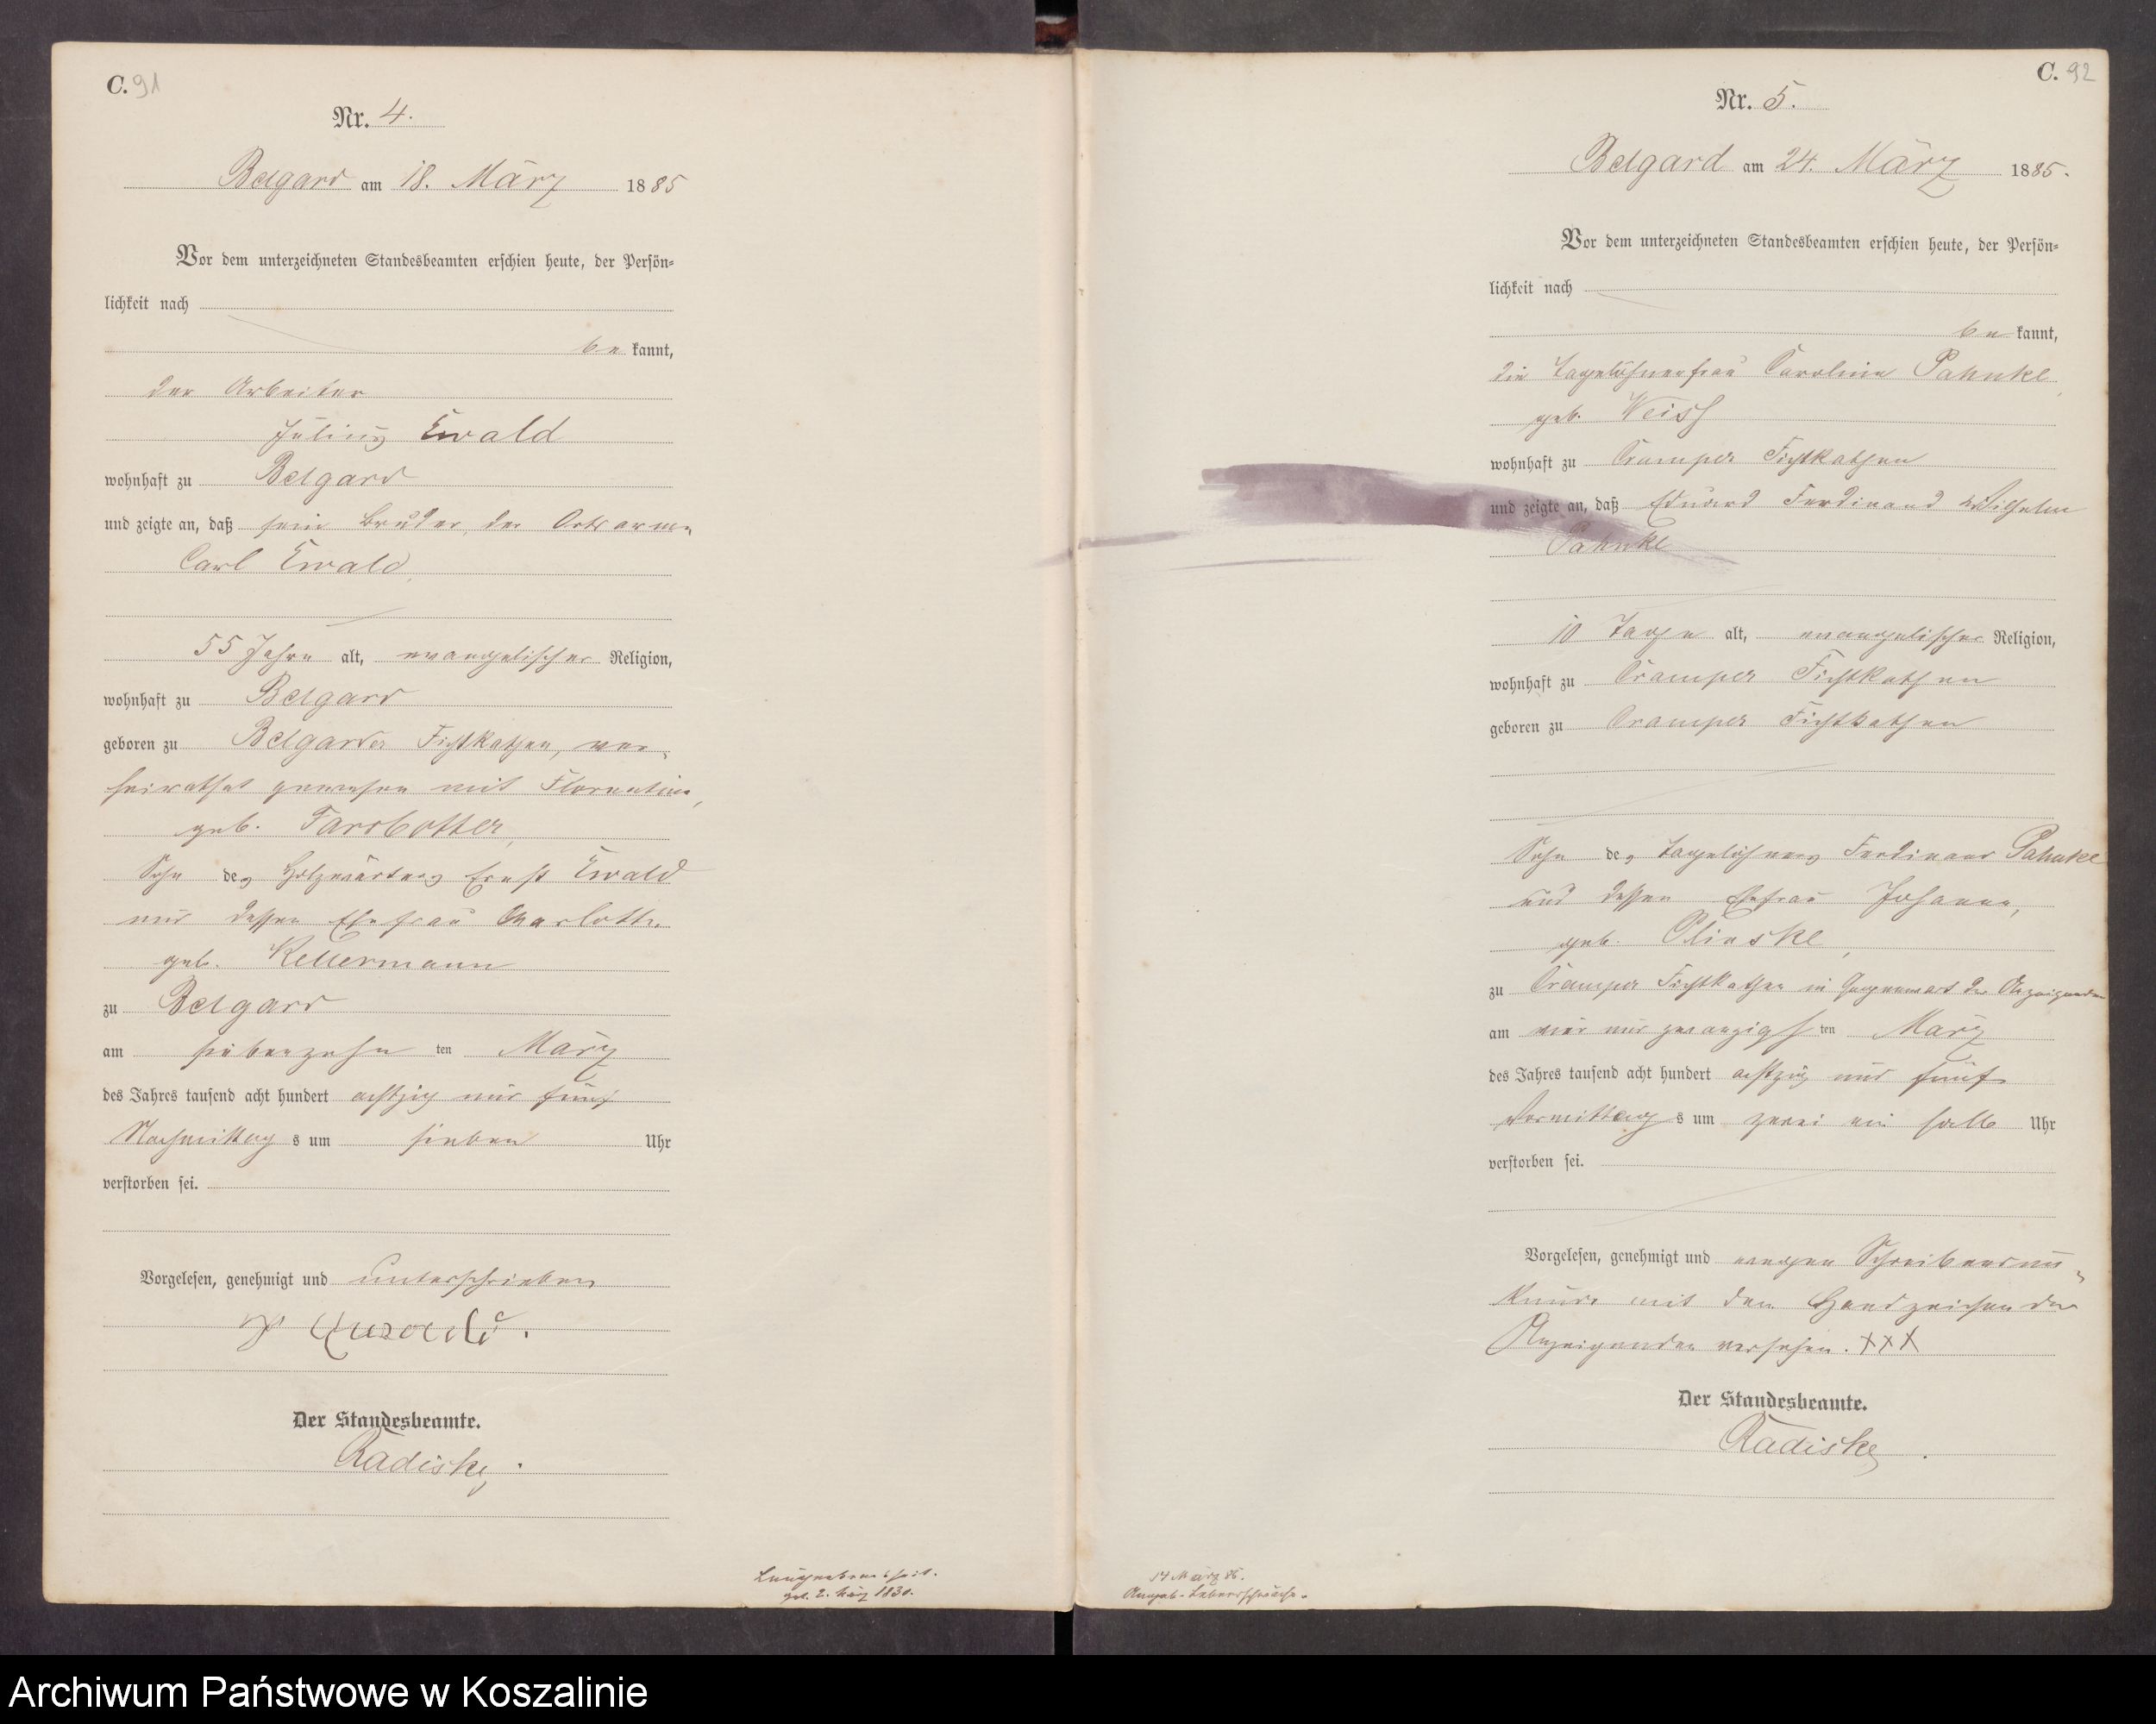 C. 91
Nr. 4.
Belgard am 18. März 1885
Vor dem unterzeichneten Standesbeamten erschien heute, der Persön=
lichkeit nach
be kannt,
der Arbeiter
Julius Ewald
wohnhaft zu Belgard
und zeigte an, daß sein Bruder, der Ortsarme
Carl Ewald,
55 Jahre alt, evangelischer Religion,
wohnhaft zu Belgard
geboren zu Belgarder Fichtkathen, ver=
heirathet gewesen mit Florentine,
geb.
Sohn des Holzwärters Ernst Ewald
und dessen Ehefrau Charlotte
geb. Kellermann
zu Belgard
am siebenzehn ten März
des Jahres tausend acht hundert achtzig und fünf
Nachmittag s um sieben Uhr
verstorben sei.
Vorgelesen, genehmigt und unterschrieben
Der Standesbeamte.
Radiske.
geb. 2. März 1830.
C. 92
Nr. 5.
Belgard am 24. März 1885.
Vor dem unterzeichneten Standesbeamten erschien heute, der Persön=
lichkeit nach
be kannt,
die Tagelöhnerfrau Caroline Pahnke,
geb. Weiss
wohnhaft zu Cramper Fichtkathen
und zeigte an, daß Eduard Ferdinand Wilhelm
Pahnke
10 Tage alt, evangelischer Religion,
wohnhaft zu Cramper Fichtkathen
geboren zu Cramper Fichtkathen
Sohn des Tagelöhners Ferdinand Pahnke
und dessen Ehefrau Johanna,
geb. Plinske,
zu Cramper Fichtkathen in Gegenwart der Anzeigenden
am vier und zwanzigs ten März
des Jahres tausend acht hundert achtzig und fünf
Vormittag s um zwei ein halb Uhr
verstorben sei.
Vorgelesen, genehmigt und wegen Schreibensun=
kunde mit dem Handzeichen der
Anzeigenden versehen. XXX
Der Standesbeamte.
Radiske.
14 März 85.
Angeb. Lebensschwäche.
Archiwum Państwowe w Koszalinie